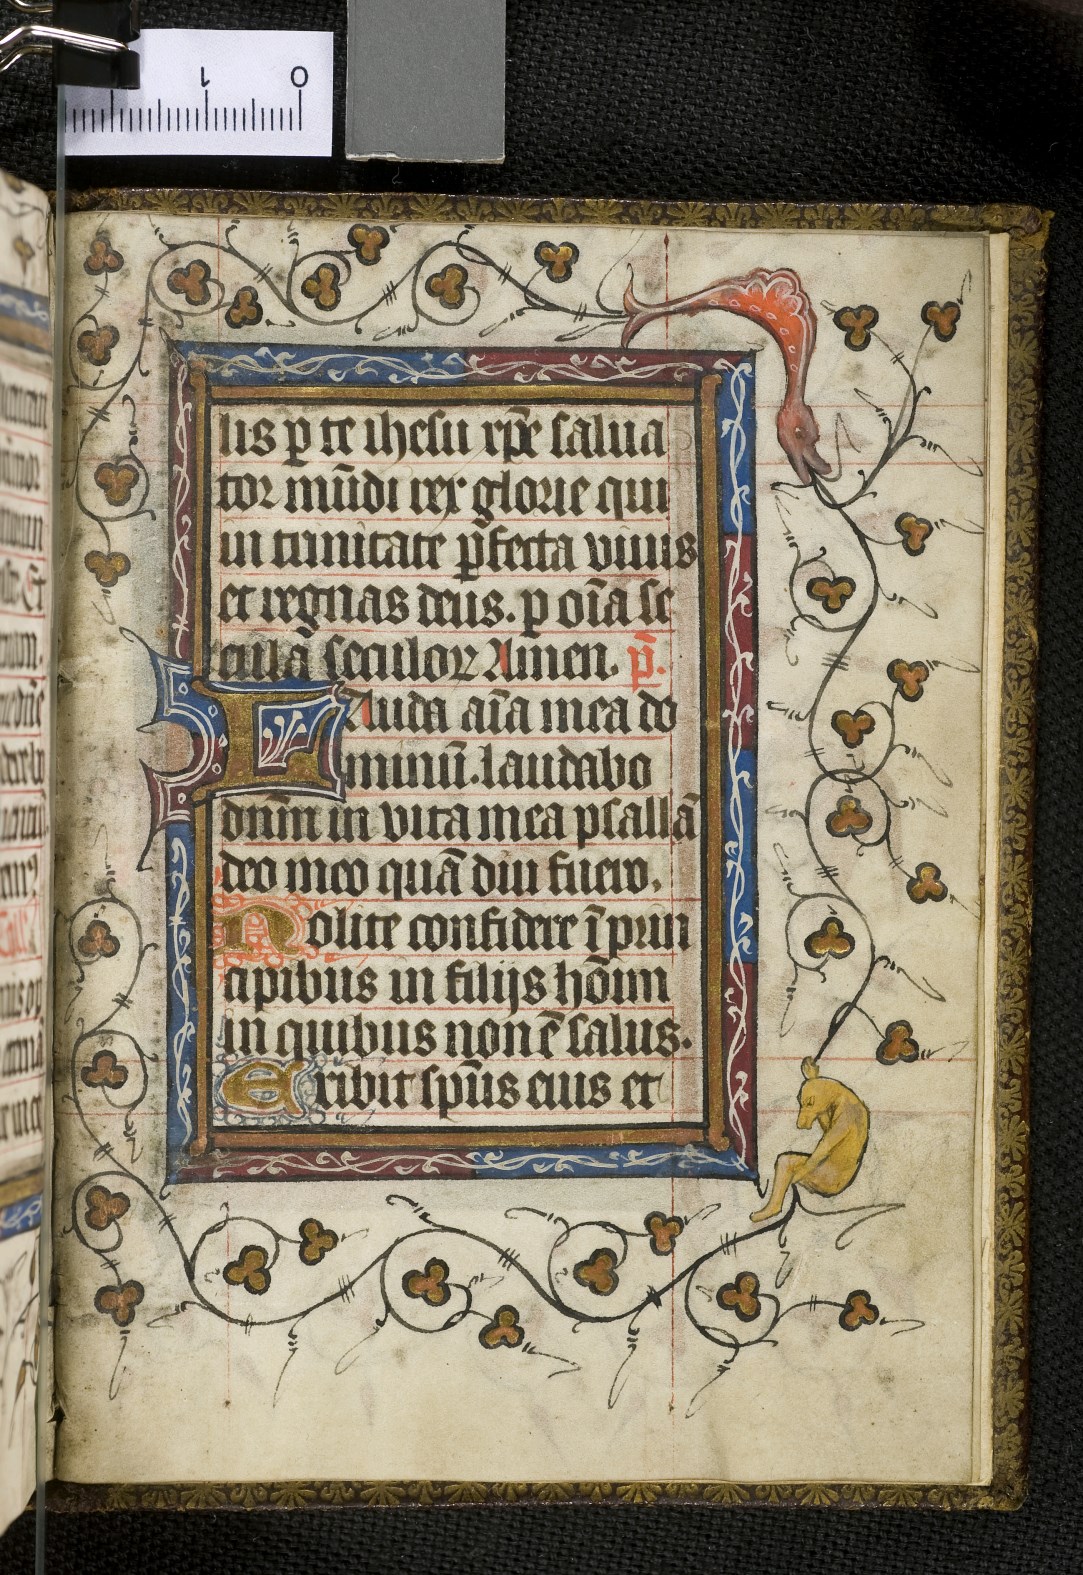 lis p te ihesu xp̄e salua
tor mūdi rex glorie qui
in trinitate p̄fecta viuis
et regnas deus. p oīa se
cula seculor Amen. p̄.
LAuda aīa mea do
minū. laudabo
dn̄m in vita mea psallā
deo meo quā diu fuero.
Nolite confidere ī prin
cipibus in filijs hōim
in quibus non ē salus.
Exibit sp̄us eius et
0 1